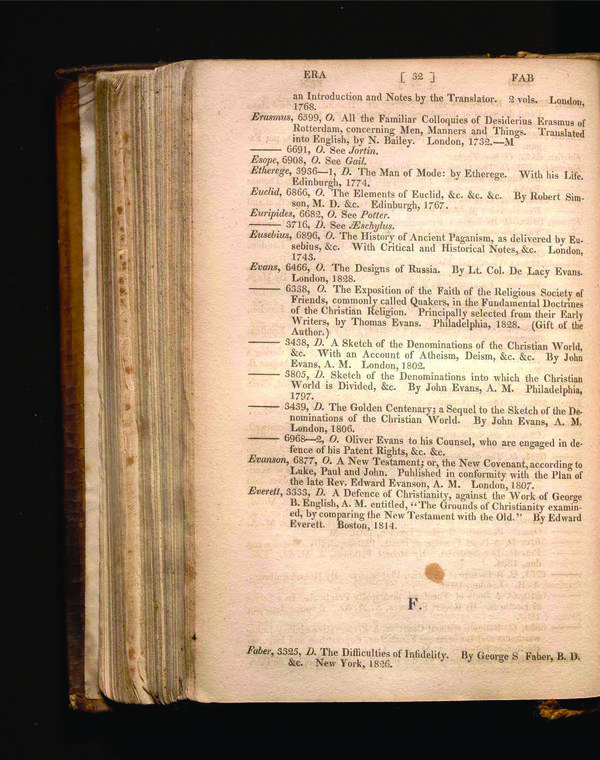 ERA [ 52 ] FAB
an Introduction and Notes by the Translator. 2 vols. London,
1768.
Erasmus, 6599, O. All the Familiar Colloquies of Desiderius Erasmus of
Rotterdam, concerning Men, Manners and Things. Translated
into English, by N. Bailey. London, 1732.—M
—— 6691, O. See Jortin.
Esope, 6908, O. See Gail.
Etherege, 3936—1, D. The Man of Mode: by Etherege. With his Life.
Edinburgh, 1774.
Euclid, 6866, O. The Elements of Euclid, &c. &c. &c. By Robert Sim-
son, M. D. &c. Edinburgh, 1767.
Euripides, 6682, O. See Potter.
—— 3716, D. See Æschylus.
Eusebius, 6896, O. The History of Ancient Paganism, as delivered by Eu-
sebius, &c. With Critical and Historical Notes, &c. London,
1743.
Evans, 6466, O. The Designs of Russia. By Lt. Col. De Lacy Evans.
London, 1828.
—— 6338, O. The Exposition of the Faith of the Religious Society of
Friends, commonly called Quakers, in the Fundamental Doctrines
of the Christian Religion. Principally selected from their Early
Writers, by Thomas Evans. Philadelphia, 1828. (Gift of the
Author.)
—— 3438, D. A Sketch of the Denominations of the Christian World,
&c. With an Account of Atheism, Deism, &c. &c. By John
Evans, A. M. London, 1802.
—— 3805, D. Sketch of the Denominations into which the Christian
World is Divided, &c. By John Evans, A. M. Philadelphia,
1797.
—— 3439, D. The Golden Centenary; a Sequel to the Sketch of the De-
nominations of the Christian World. By John Evans, A. M.
London, 1806.
—— 6968—2, O. Oliver Evans to his Counsel, who are engaged in de-
fence of his Patent Rights, &c. &c.
Evanson, 6877, O. A New Testament; or, the New Covenant, according to
Luke, Paul and John. Published in conformity with the Plan of
the late Rev. Edward Evanson, A. M. London, 1807.
Everett, 3333, D. A Defence of Christianity, against the Work of George
B. English, A. M. entitled, "The Grounds of Christianity examin-
ed, by comparing the New Testament with the Old." By Edward
Everett. Boston, 1814.
F.
Faber, 3325, D. The Difficulties of Infidelity. By George S Faber, B. D.
&c. New York, 1826.